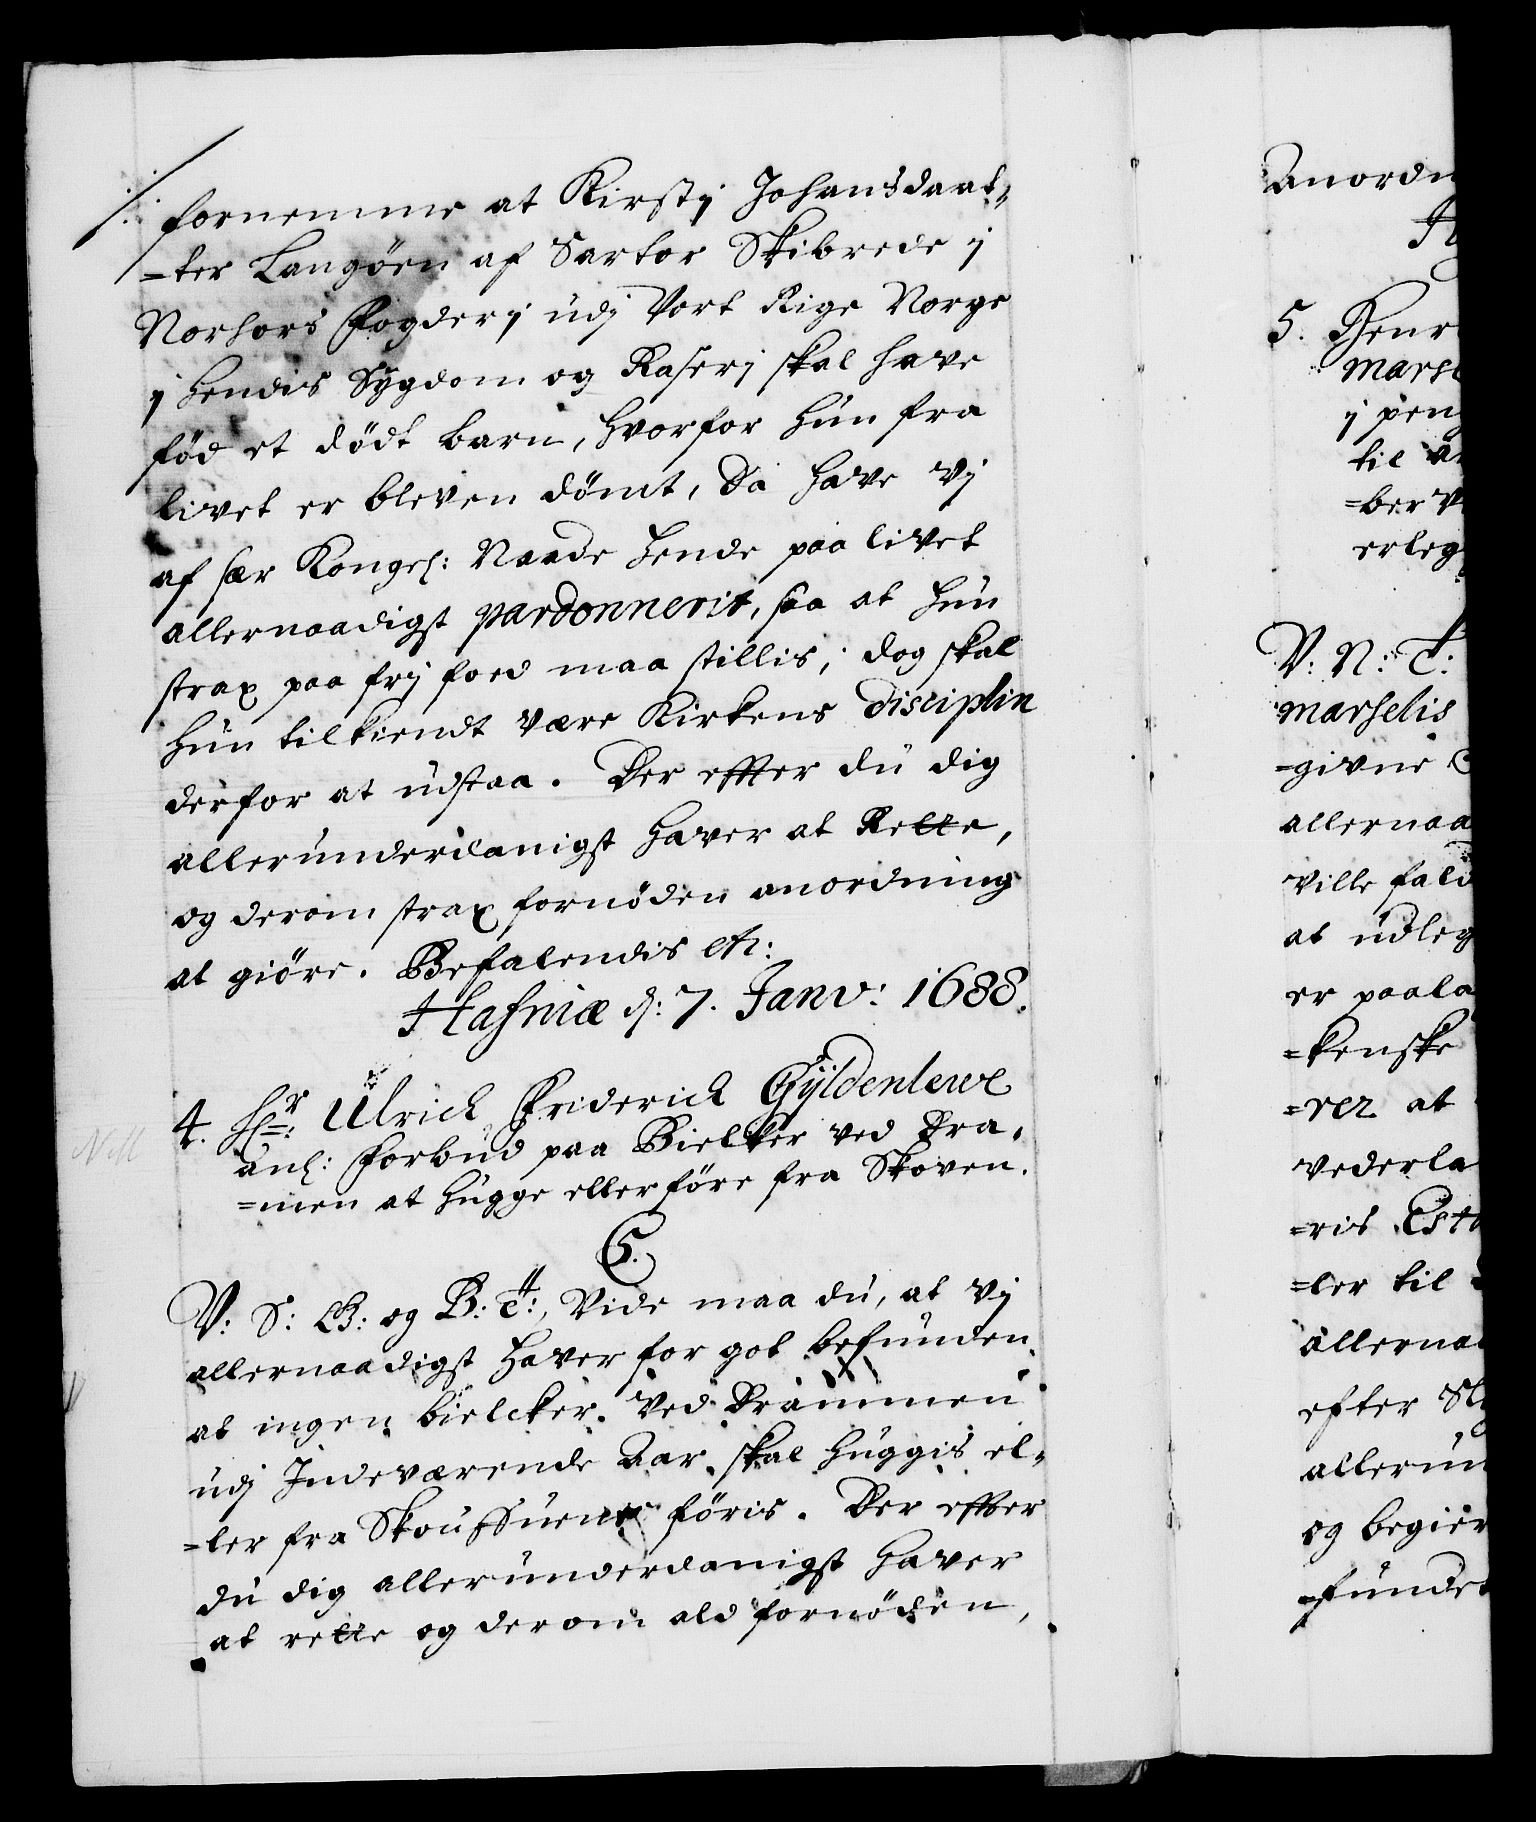 fornemme at Kirstj Johansdaat-
=ter Langöen af Sartor Skibrede j
Norhors Fogderj udj Vort Rige Norge
j hendis Sÿgdom og Raserj skal have
föd et dödt barn, hvorfor hun fra
livet er bleven dömt, Da have Vj
af sær Kongel: Naade hende paa livet
allernaadigst pardonnerit, saa at hun
strax paa frj foed maa stillis, dog skal
hun tilkiendt være Kirkens disciplin
derfor at udstaa. Der effter du dig
allerunderdanigst haver at Rette,
og derom strax fornöden anordning
at giöre. Befalendis etc:
Hafniæ d: 7. Janv: 1688.
4. Hr: Ulrich Friderich Gÿldenlewe
anl: Forbud paa Bielcker ved Dra-
=men at hugge eller före fra Skoven.
C5.
V: S: B: og B: T:, Vide maa du, at Vj
allernaadigst haver for got befunden
at ingen bielcker ved Drammen
udj Indeværende Aar skal huggis el-
=ler fra Skouffuene föris. Der effter
du dig allerunderdanigst haver
at rette og derom ald fornöden,
Anordn
5. Henr
Marse
j pen
til
=ber
erleg
V: N: T:
Marselis
=givne
allernaa
ville fald
at udleg
er paala
=kenske
=rer at
vederla
=ris Est
=ler til
allernaa
efter
allerun
og begier
=funde